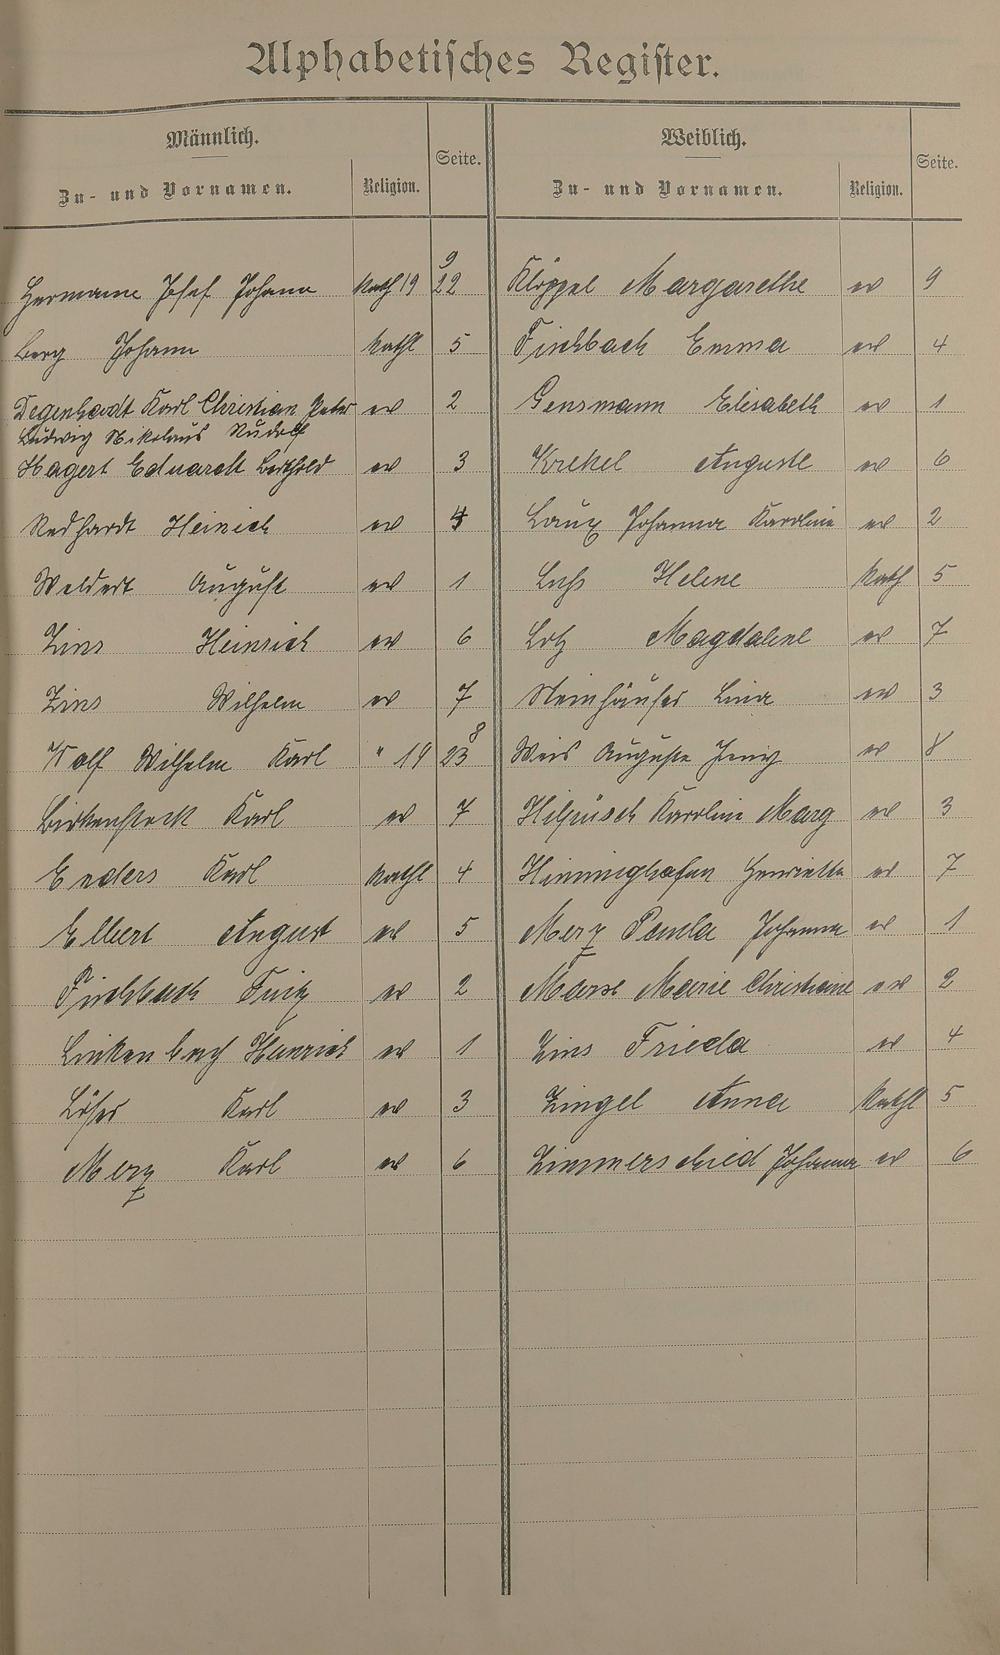 Alphabetisches Register.
Männlich.
Zu- und Vornamen. Religion. Seite.
Hermann Josef Johann Kath 19 22 9
Berg Johann Kathl 5
Degenhardt Karl Christian Peter ev 2
Ludwig Nikolaus Rudolf
Hagert Eduardt Berthold ev 3
Redhardt Heinrich ev 4
Weldert August ev 1
Zins Heinrich ev 6
Zins Wilhelm ev 7
Wolf Wilhelm Karl " 19 23 8
Birkenstock Karl ev 7
Enders Karl Kathl 4
Elbert August ev 5
Fischbach Fritz ev 2
Linkenbach Heinrich ev 1
Löser Karl ev 3
Merz Karl ev 6
Weiblich.
Zu- und Vornamen. Religion. Seite.
Klöppel Margarethe ev 9
Fischbach Emma ev 4
Gensmann Elisabeth ev 1
Krekel Auguste ev 6
Laux Johanna Karoline ev 2
Helene Kath 5
Lotz Magdalene ev 7
Steinhäuser Lina ev 3
Weis Auguste Jeny ev 8
Karoline Marg ev 3
Himminghofen Henriette ev 7
Merz Paula Johanna ev 1
Marie Christiane ev 2
Zins Frieda ev 4
Zingel Anna Kathl 5
Zimmerschied Johanna ev 6